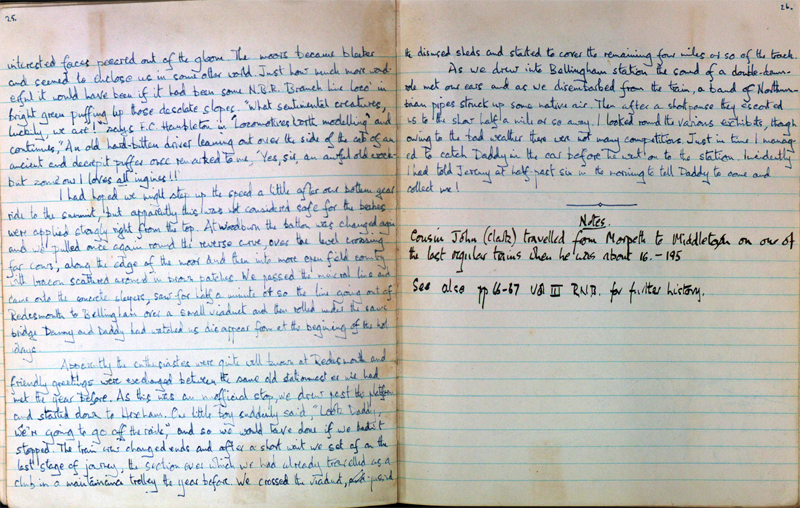 25.
interested faces peered out of the gloom. The moors became bleaker
and seemed to enclose us in some other world. Just how much more wond-
erful it would have been if it had been some N.B.R. Branch line loco' in
bright green puffing up those desolate slopes. "What sentimental creatures,
luckily, we are!" says F.C. Hambleton in 'Locomotives worth modelling' and
continues, "An old hard-bitten driver leaning out over the side of the cab of an
ancient and decrepit puffer once remarked to me, 'Yes, sir, an awful old
but somehow I loves all ingines!!'
I had hoped we might catch up the speed a little after our bottom gear
ride to the summit, but apparently this was not considered safe for the brakes
were applied strongly right from the top. At Woodburn the batton was changed again
and we pulled once again round the reverse curve, over the level crossing
for cows', along the edge of the moor and then into more open field country
with bracon scattered around in brown patches. We passed the mineral line and
came onto the concrete sleepers, saw for half a minute or so the line going out of
Redesmouth to Bellingham over a small viaduct and then rolled under the same
bridge Danny and Daddy had watched us disappear from at the begining of the hot
days.
Apparently the enthusiastes were quite well known at Redesmouth and
friendly greetings were exchanged between the same old stationmaster we had
met the year before. As this was an unofficial stop, we drew past the platform
and started down to Hexham. One little boy suddenly said, "Look Daddy,
we're going to go off the rails," and so we would have done if we hadn't
stopped. The train crew changed ends and after a short wait we set of on the
last stage of journey, the section over which we had already travelled as a
club in a maintainance trolley the year before. We crossed the viaduct, and passed
26.
the disused sheds and started to cover the remaining four miles or so of the track.
As we drew into Bellingham station the sound of a double-barr-
ole met our ears and as we disembarked from the train, a band of Northum-
brian pipes struck up some native air. Then after a short pause they escorted
us to the show half a mile or so away. I looked round the various exhibits, though
owing to the bad weather there were not many competitors. Just in time I manag-
ed to catch Daddy in the car before he went on to the station. Incidently
I had told Jeremy at half past six in the morning to tell Daddy to come and
collect me!
Notes.
Cousin John (Clark) travelled from Morpeth to Middleton on one of
the last regular trains when he was about 16. – 195
See also pp 66-67 Vol III R.N.B. for further history.